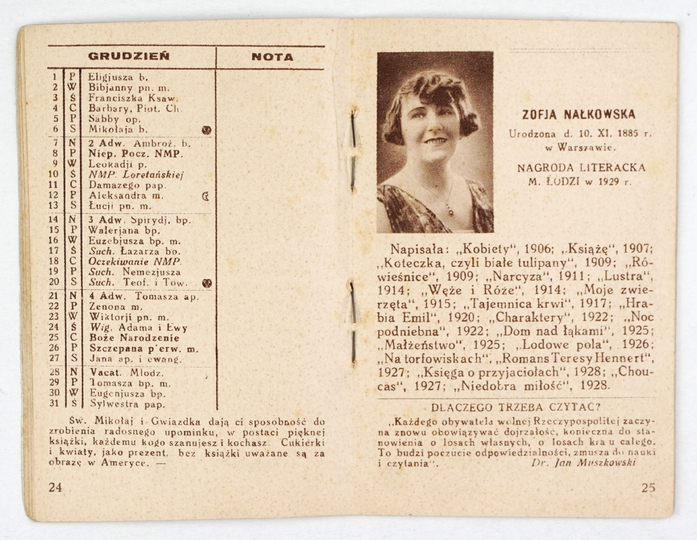 GRUDZIEŃ NOTA
1 P Eligjusza b.
2 W Bibjanny pn. m.
3 Ś Franciszka Ksaw.
4 C Barbary, Piot. Ch.
5 P Sabby op.
6 S Mikołaja b.
7 N 2 Adw. Ambroż. b.
8 P Niep. Pocz. NMP.
9 W Leokadji p.
10 Ś NMP. Loretańskiej
11 C Damazego pap.
12 P Aleksandra m.
13 S Łucji pn. m.
14 N 3 Adw. Spirydj. bp.
15 P Walerjana bp.
16 W Euzebjusza bp. m.
17 Ś Such. Łazarza bp.
18 C Oczekiwanie NMP.
19 P Such. Nemezjusza
20 S Such. Teof. i Tow.
21 N 4 Adw. Tomasza ap.
22 P Zenona m.
23 W Wiktorji pn. m.
24 Ś Wig. Adama i Ewy
25 C Boże Narodzenie
26 P Szczepana p'erw. m.
27 S Jana ap. i ewang.
28 N Vacat. Młodz.
29 P Tomasza bp. m.
30 W Eugenjusza bp.
31 Ś Sylwestra pap.
Św. Mikołaj i Gwiazdka dają ci sposobność do
zrobienia radosnego upominku, w postaci pięknej
książki, każdemu kogo szanujesz i kochasz Cukierki
i kwiaty, jako prezent, bez książki uważane są za
obrazę w Ameryce. —
24
ZOFJA NAŁKOWSKA
Urodzona d. 10. XI. 1885 r.
w Warszawie.
NAGRODA LITERACKA
M. ŁODZI w 1929 r.
Napisała: „Kobiety“, 1906; „Książę“, 1907;
„Koteczka, czyli białe tulipany“, 1909; „Ró-
wieśnice“, 1909; „Narcyza“, 1911; „Lustra“,
1914; „Węże i Róże“, 1914; „Moje zwie-
rzęta“, 1915; „Tajemnica krwi“, 1917; „Hra-
bia Emil“, 1920; „Charaktery“, 1922; „Noc
podniebna“, 1922; „Dom nad łąkami“, 1925;
„Małżeństwo“, 1925; „Lodowe pola“, 1926;
„Na torfowiskach“, „Romans Teresy Hennert“,
1927; „Księga o przyjaciołach“, 1928; „Chou-
cas“, 1927; „Niedobra miłość“, 1928.
DLACZEGO TRZEBA CZYTAĆ?
„Każdego obywatela wolnej Rzeczypospolitej zaczy-
na znowu obowiązywać dojrzałość, konieczna do sta-
nowienia o losach własnych, o losach kraju całego.
To budzi poczucie odpowiedzialności, zmusza do nauki
i czytania“. Dr. Jan Muszkowski
25